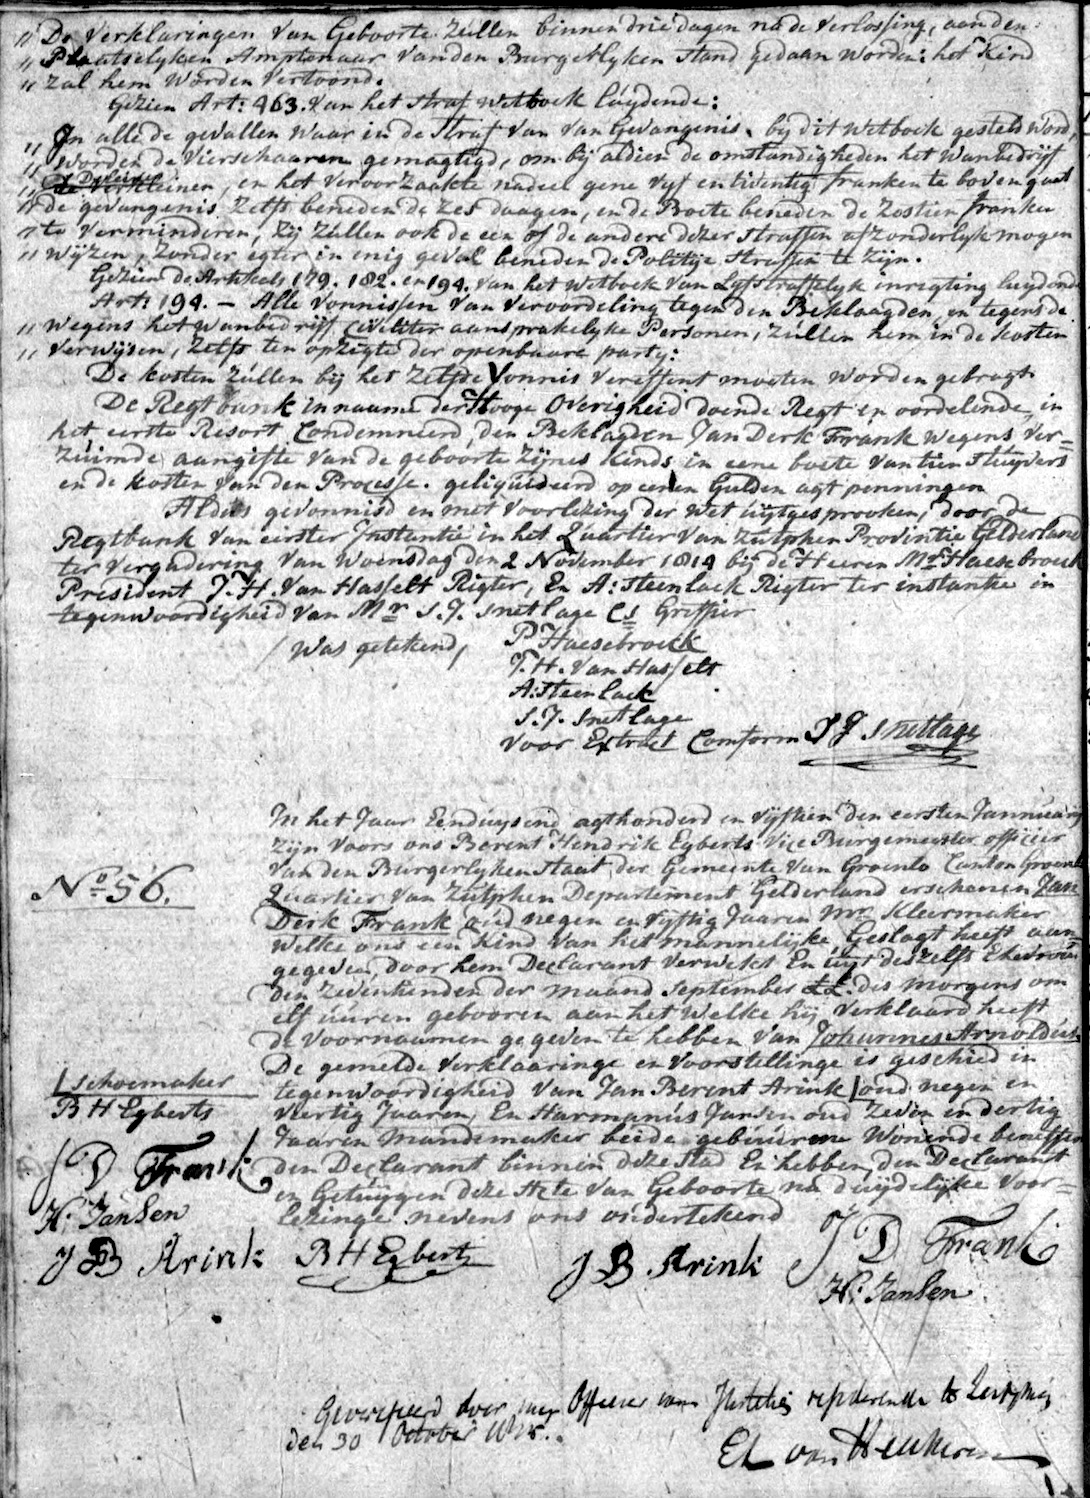 " De Verklaringen van Geboorte zúllen binnen drie dagen na de verlossing, aan den
" Plaatselyken Amptenaar van den Burgerlyken Stand gedaan worden: het Kind
" zal hem worden vertoond.
Gezien Art: 463. van het straf wetboek lúydende:
" In alle de gevallen waar in de Straf van van Gevangenis, by dit wetboek gesteld word,
" worden de Vierschaaren gemagtigd, om bij aldien de omstandigheden het Wanbedrijf
" verkleinen, en het veroorzaakte nadeel gene vyf en twentig franken te boven gaat
" de gevangenis zelfs beneden de zes daagen, en de Boete beneden de Zestien franken
" te verminderen, zij zúllen ook de een of de andere dezer straffen afzonderlyk mogen
" wijzen, zonder egter in enig geval beneden de Politije straffen te zijn.
Gezien de Artikels 179. 182. en 194. van het wetboek van Lyfstraffelyk inregting luydende
Art: 194. – Alle vonnissen van veroordeling tegen den Beklaagden, en tegens de
" wegens het wanbedrijf aansprakelyke Personen, zúllen hem in de kosten
" verwijsen, zelfs ten opzigte der openbaare party:
De kosten zúllen bij het zelfde Vonnis vereffent moeten worden gebragt
De Regtbank in naame der Hooge Overigheid doende Regt en oordelende in
het eerste Resort Condemneerd den Beklagden Jan Derk Frank wegens ver=
zuimde aangifte van de geboorte zijnes Kinds in eene boete van tien stuyvers
en de kosten van den Processe. geliquideerd op eenen Gulden agt penningen
Aldús gevonnisd en met voorlezing der wet úijtgesprooken, door de
Regtbank van eerster Instantie in het Quartier van Zutphen Provintie Gelderland
ter vergadering van Woensdag den 2 November 1814 bij de Heeren Mr Haesebroeck
President J. H. van Hasselt Rigter, En A: Steenlack Rigter ter instantie in
tegenwoordigheid van Mr S. J. Snetlage Cs Griffier
/ was getekend / P Haesebroeck
J. H. van Hasselt
A: Steenlack
S. J. Snetlage
Voor Extract Conform S J Snetlage
In het Jaar Eenduysend agthonderd en vijftien den eersten Jannuarij
zijn voor ons Berent Hendrik Egberts Vice Búrgemeester officier
van den Búrgerlyken Staat der Gemeente van Groenlo Canton Groenlo
No 56. Quartier van Zútphen Departement Gelderland erschenen Jan
Derk Frank oúd negen en vijftig Jaaren Mr Kleermaker
welke ons een kind van het mannelijke Geslagt heeft aan
gegeven, door hem Declarant verwekt En uijt deszelfs Ehevroúw
den zeventienden der maand September LL. des morgens om
elf úuren gebooren aan het welke hij verklaard heeft
de voornaamen gegeven te hebben van Johannes Arnoldus
De gemelde verklaaringe en voorstellinge is geschied in
| schoemaker tegenwoordigheid van Jan Berent Arink | oud negen en
B H Egberts viertig Jaaren, En Harmanús Jansen oud zeven en dertig
Jaaren Mandemaker beide gebúúren wonende beneffens
J D Frank den Declarant binnen deze stad En hebben den Declarant
en Getúijgen deze Acte van Geboorte na duijdelijke voor=
H: Jansen lezinge nevens ons ondertekend
J B Arink B H Egberts J B Arink J D Frank
H: Jansen
Geverifieerd door Officier van Justitie te Zutphen
den 30 October